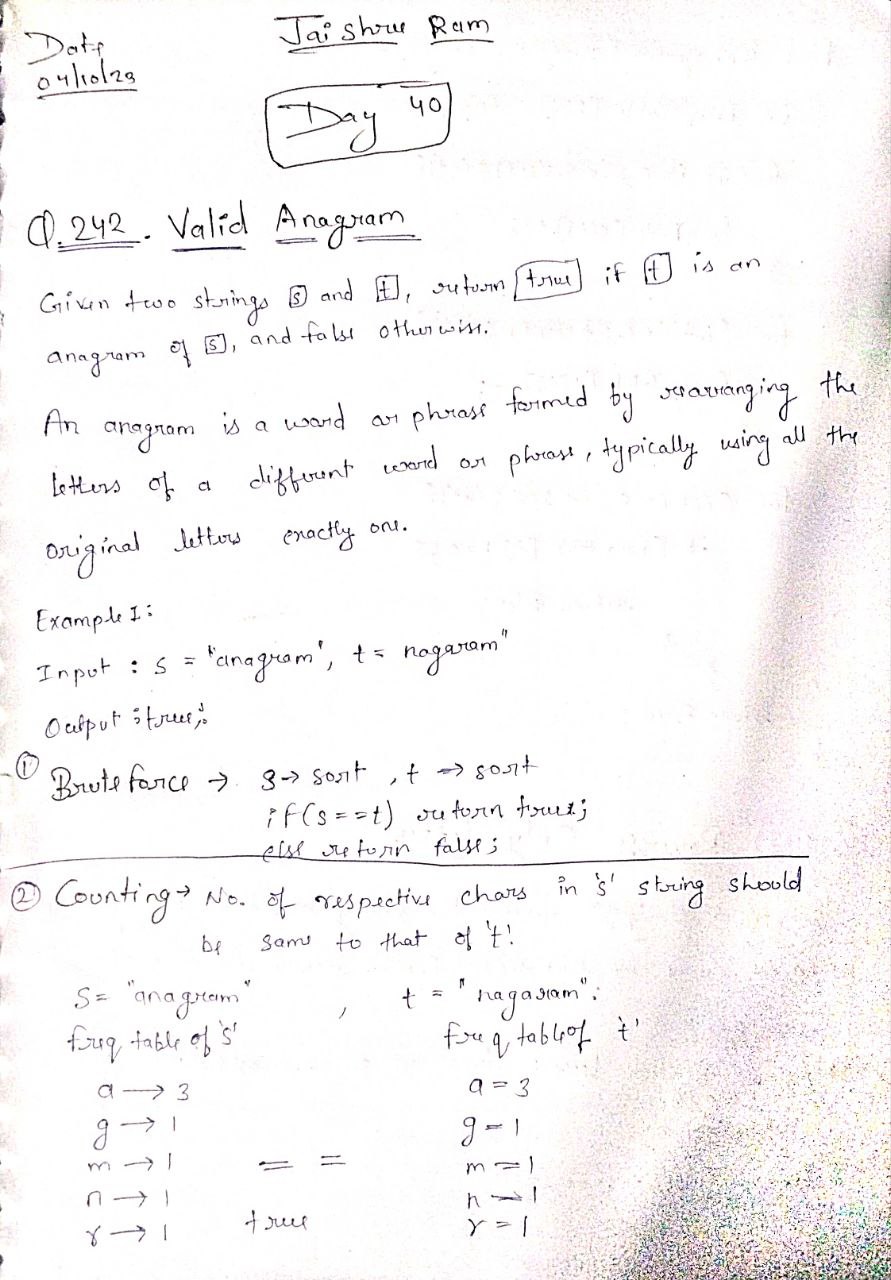 Jai shree Ram
Date
04/10/23
Day 40
Q.242. Valid Anagram
Given two strings s and t, return true if t is an
anagram of s, and false otherwise.
An anagram is a word or phrase formed by rearranging the
letters of a different word or phrase, typically using all the
original letters exactly one.
Example I:
Input : s = "anagram", t = nagaram"
Output : true;
① Brute force → s → sort , t → sort
if(s==t) return true;
else return false;
② Counting → No. of respective chars in 's' string should
be same to that of 't'.
S = "anagram" , t = "nagaram".
freq table of 's' freq table of 't'
a → 3 a = 3
g → 1 g = 1
m → 1 = = m = 1
n → 1 n → 1
r → 1 true r = 1